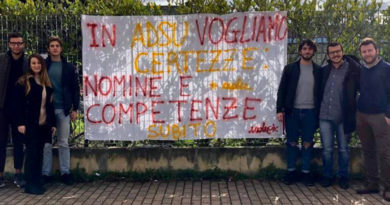 IN ADSU VOGLIAMO
CERTEZZE
NOMINE E
COMPETENZE
SUBITO